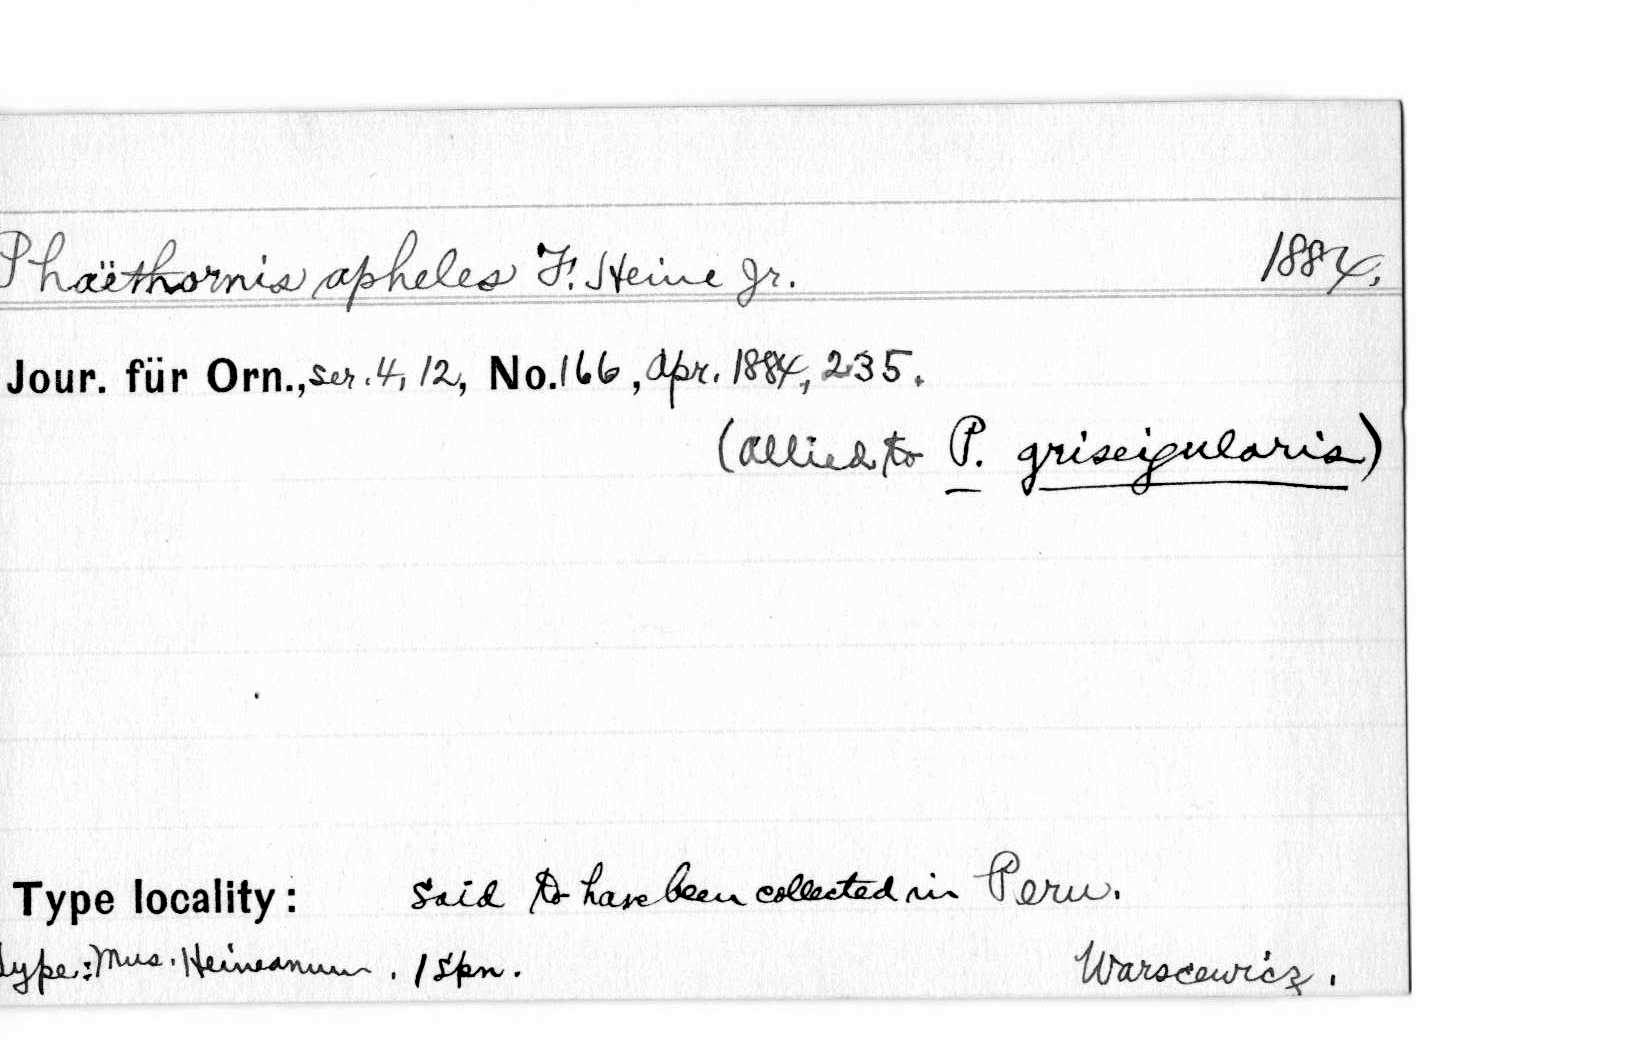 Phaëthornis apheles F. Heine Jr. 1884.
Jour. für Orn., ser. 4, 12, No. 166, Apr. 1884, 235.
(allied to P. griseigularis)
Type locality: Said to have been collected in Peru.
Type: Mus. Heineanum. 1 spn. Warscewicz.